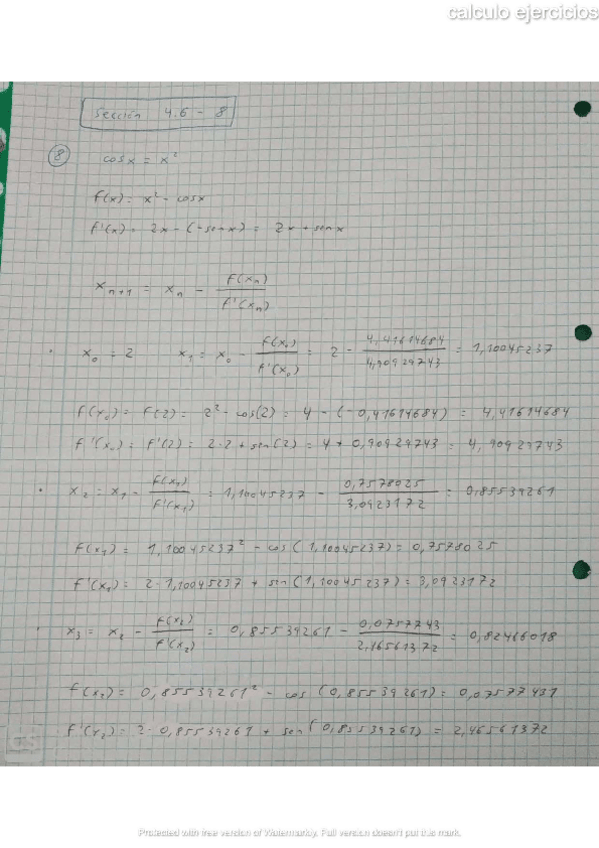 calculo ejercicios
Sección 4.6 - 8
8 cos x = x²
f(x) = x² - cos x
f'(x) = 2x - (-sen x) = 2x + sen x
x_{n+1} = x_n - f(x_n) / f'(x_n)
· x_0 = 2 x_1 = x_0 - f(x_0) / f'(x_0) = 2 - 4,41614684 / 4,90929743 = 1,10045237
f(x_0) = f(2) = 2² - cos(2) = 4 - (-0,41614684) = 4,41614684
f'(x_0) = f'(2) = 2·2 + sen(2) = 4 + 0,90929743 = 4,90929743
· x_2 = x_1 - f(x_1) / f'(x_1) = 1,10045237 - 0,7578025 / 3,0923172 = 0,85539261
f(x_1) = 1,10045237² - cos(1,10045237) = 0,7578025
f'(x_1) = 2·1,10045237 + sin(1,10045237) = 3,0923172
· x_3 = x_2 - f(x_2) / f'(x_2) = 0,85539261 - 0,0757743 / 2,46561372 = 0,82466018
f(x_2) = 0,85539261² - cos(0,85539261) = 0,07577431
f'(x_2) = 2·0,85539261 + sen(0,85539261) = 2,46561372
Protected with free version of Watermarkly. Full version doesn't put this mark.